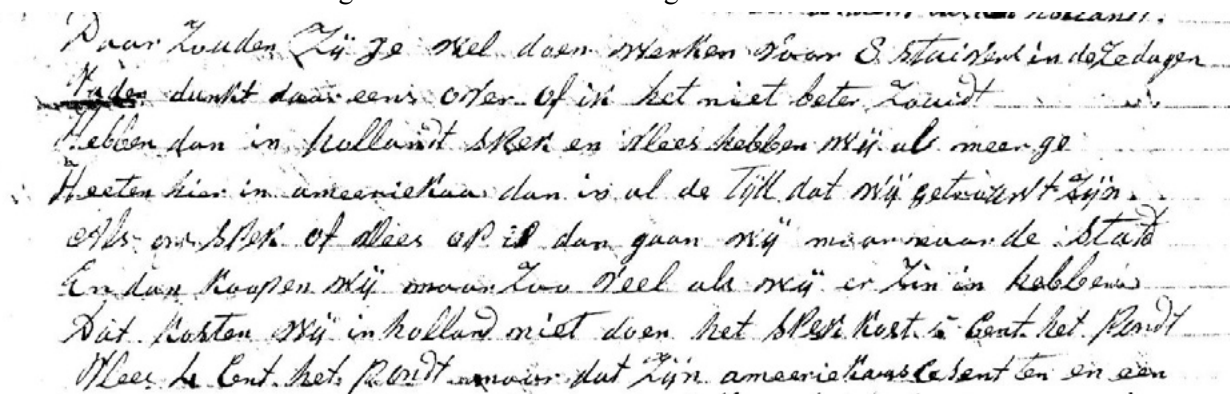 hollandt.
Daar Zouden Zij Je wel doen werken voor 8 stuivers in deze dagen
Vader dunkt daar eens over of ik het niet beter Zoudt
Hebben dan in hollandt spek en vlees hebben wij al meer ge
Heeten hier in ameeriekaa dan in al de Tijt dat wij getrouwt Zijn.
Als ons spek of vlees op is dan gaan wij maar naar de Stadt
En dan Koopen wij maar Zoo veel als wij er Zin in hebben
Dat kosten wij in holland niet doen het spek kost 5 Cent het Pondt
Vlees 4 Cent het Pondt maar dat Zijn ameeriekaansche senten en een